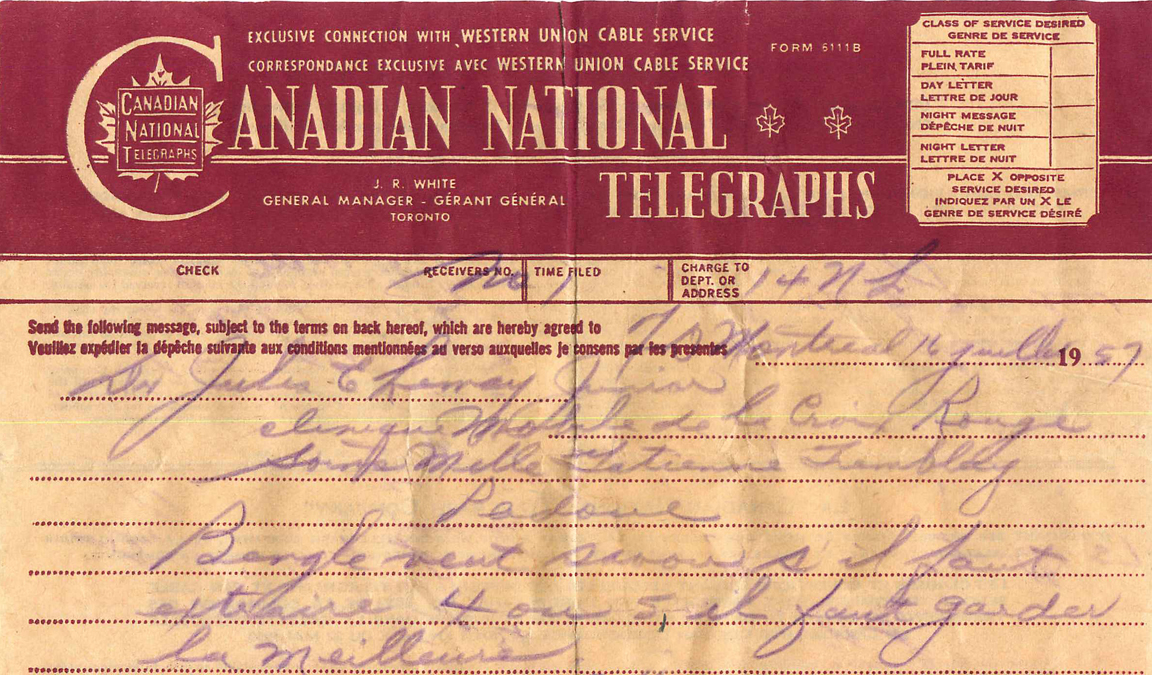 EXCLUSIVE CONNECTION WITH WESTERN UNION CABLE SERVICE
CORRESPONDANCE EXCLUSIVE AVEC WESTERN UNION CABLE SERVICE
FORM 6111B
CANADIAN NATIONAL TELEGRAPHS
CANADIAN NATIONAL
TELEGRAPHS
J. R. WHITE
GENERAL MANAGER - GÉRANT GÉNÉRAL
TORONTO
CLASS OF SERVICE DESIRED
GENRE DE SERVICE
FULL RATE
PLEIN TARIF
DAY LETTER
LETTRE DE JOUR
NIGHT MESSAGE
DÉPÊCHE DE NUIT
NIGHT LETTER
LETTRE DE NUIT
PLACE X OPPOSITE
SERVICE DESIRED
INDIQUEZ PAR UN X LE
GENRE DE SERVICE DÉSIRÉ
CHECK
RECEIVERS NO.
No 1
TIME FILED
CHARGE TO
DEPT. OR
ADDRESS
14 N L
Send the following message, subject to the terms on back hereof, which are hereby agreed to
Veuillez expédier la dépêche suivante aux conditions mentionnées au verso auxquelles je consens par les présentes
Montreal 16 juillet 1957
Dr Jules E Lemay Junior
clinique Mobile de la Croix Rouge
Mlle Estienne Tremblay
Padoue
veut savoir s'il faut
extraire 4 ou 5, il faut garder
la meilleure